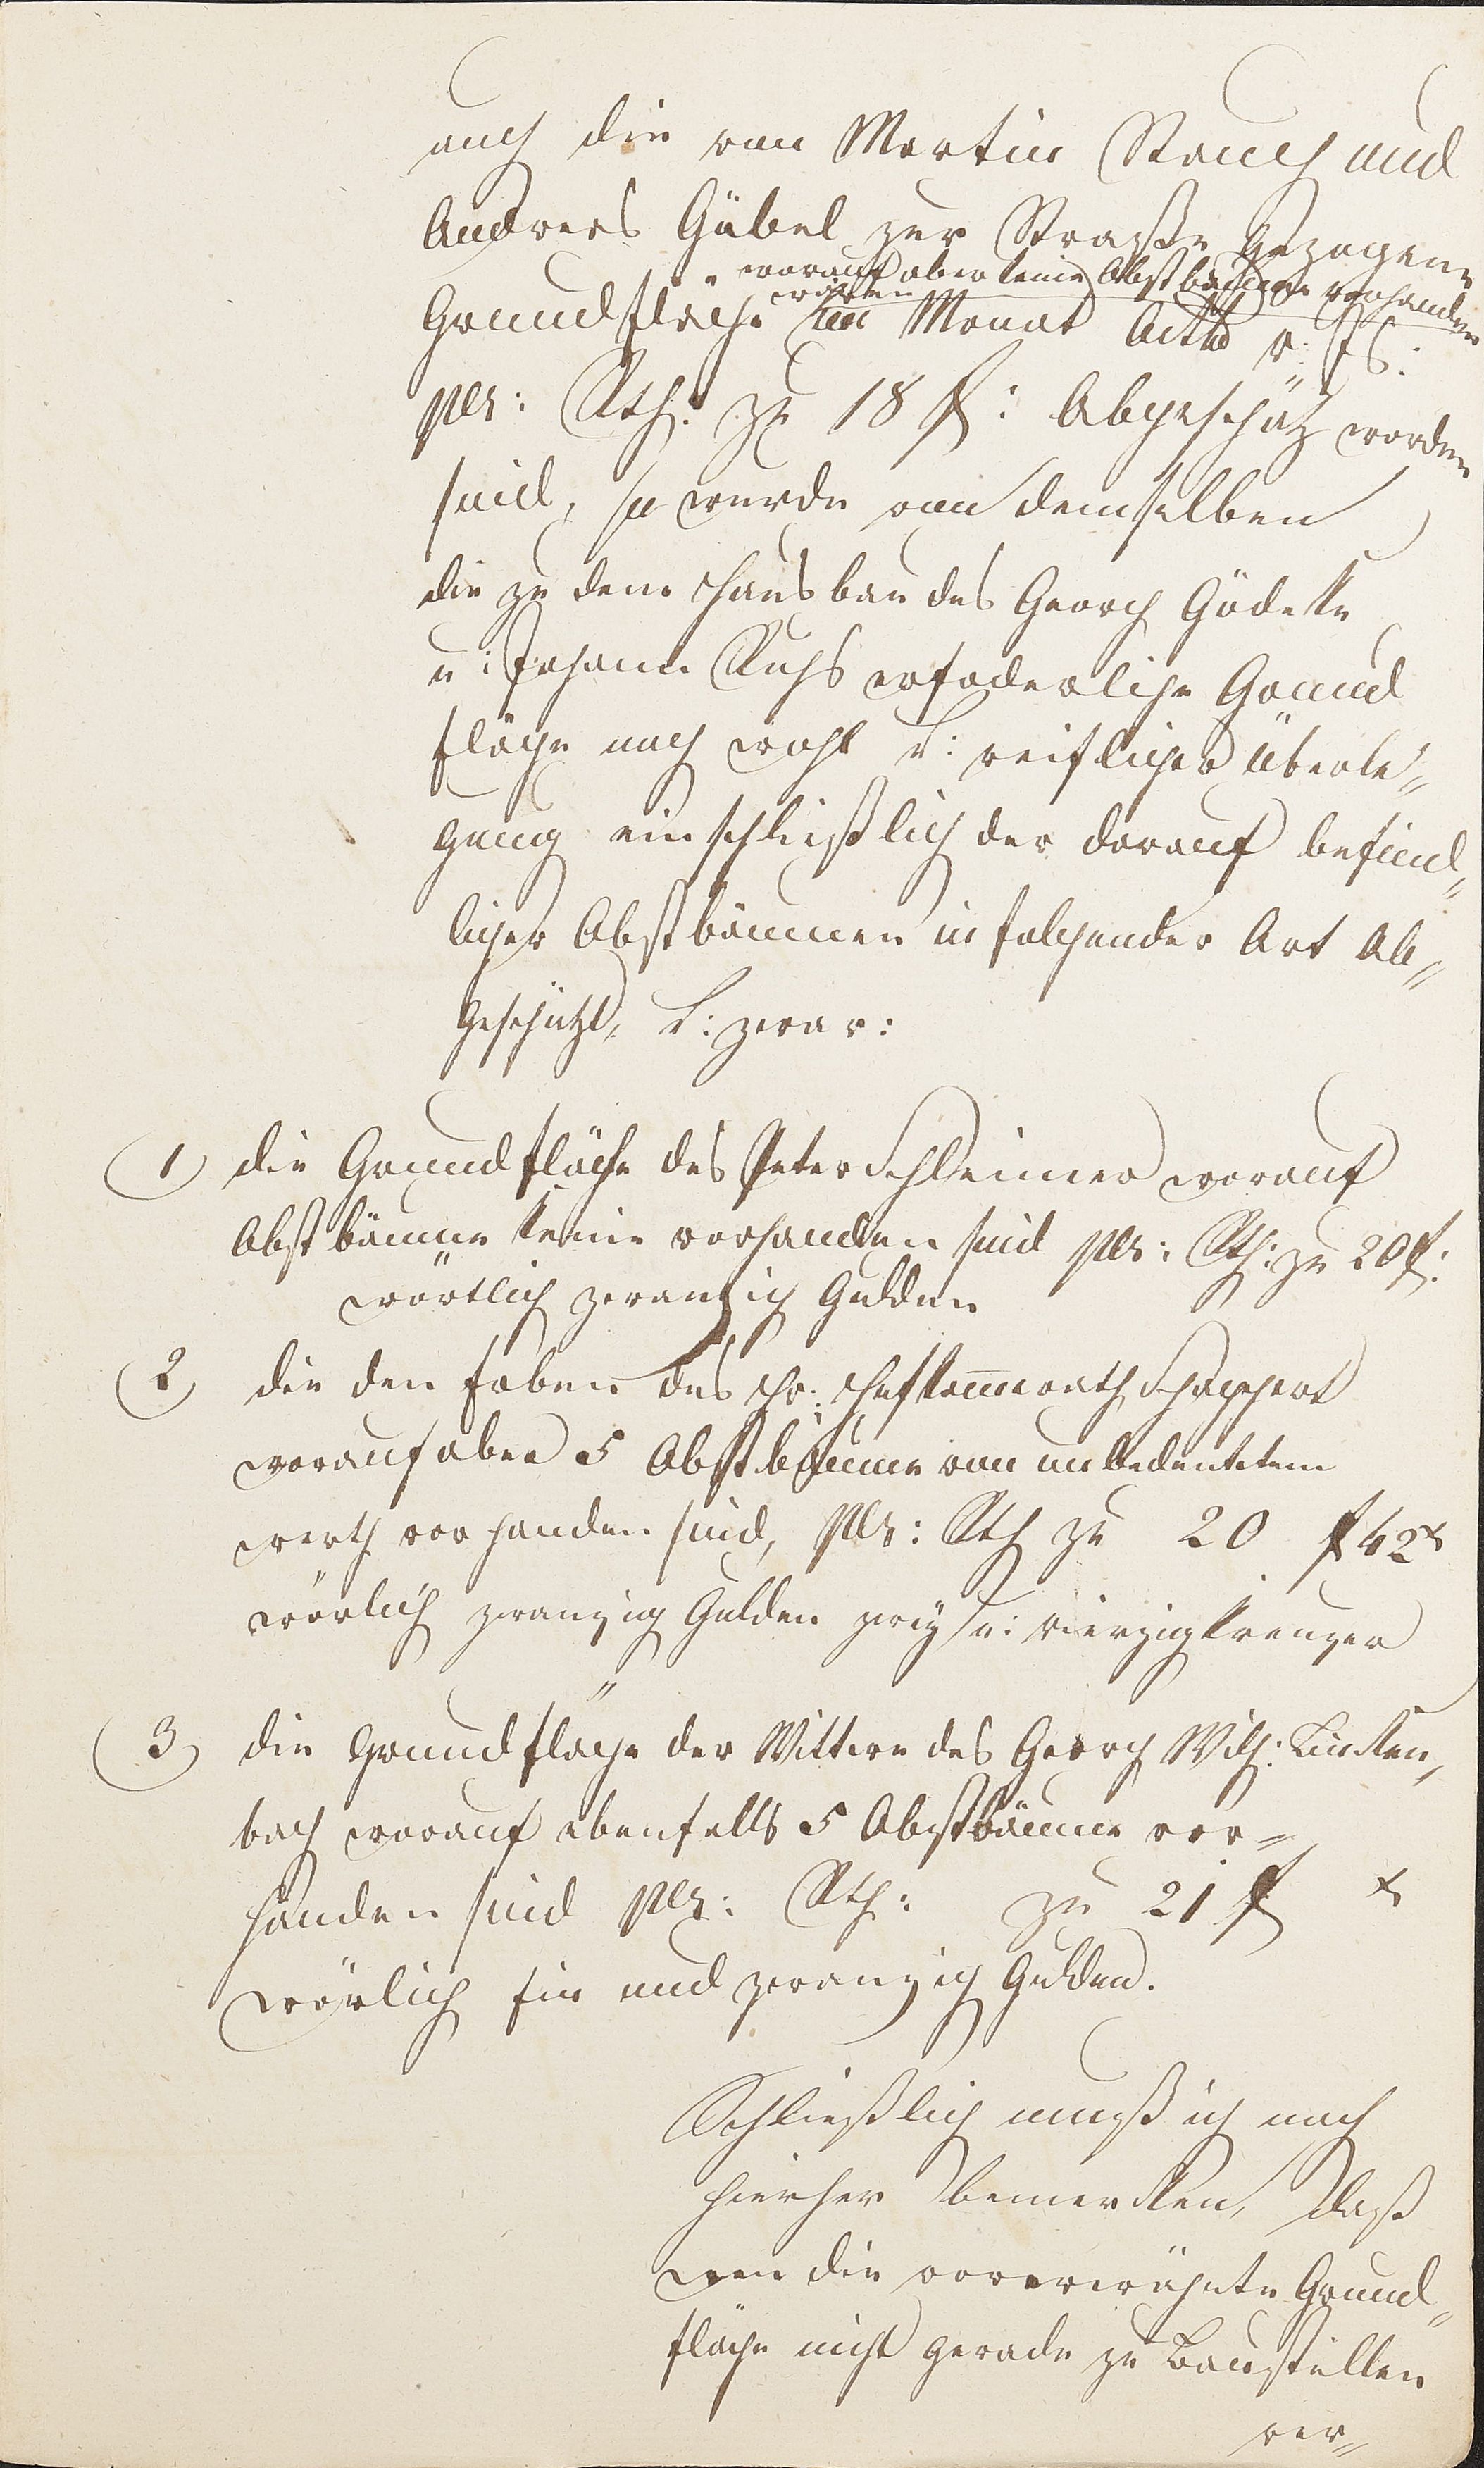 auch die von Martin Strauch und
Andreas Gübel zur Straße gezogene
worauf aber keine Obstbäume vorhanden
wären
Grundfläche im Monat Octb v: Js:
plr: Rth: zu 18 f: Abgeschätz worden
sind, so wurde von demselben
die zu dem Hausbau des Georg Gödecke
u: Johann Ruhs erfoderliche Grund
fläche nach wohl u: reiflicher Überle„
gung einschließlich der darauf befind„
licher Obstbäumen in folgender Art Ab„
geschätzt, u: zwar:
1) die Grundfläche des Peter Schleimer worauf
Obstbäume keine vorhanden sind plr: Rth: zu 20 f:
wörtlich zwanzig Gulden
2) die den Erben des Hr: Schappert
worauf aber 5 Obstbäume von unbedeutetem
werth vorhanden sind, plr: Rth zu 20 f 42 x
wörlich zwanzig Gulden zwey u: vierzig Kreuzer
3) die Grundfläche der Wittwe des Georg Wilh: Lincken„
bach worauf ebenfalls 5 Obstbäume vor„
handen sind plr: Rth: zu 21 f x
wörlich Ein und zwanzig Gulden.
Schließlich muß ich noch
hierher bemercken, daß
wen die vorerwähnte Grund„
fläche nicht gerade zu Baustellen
ver„